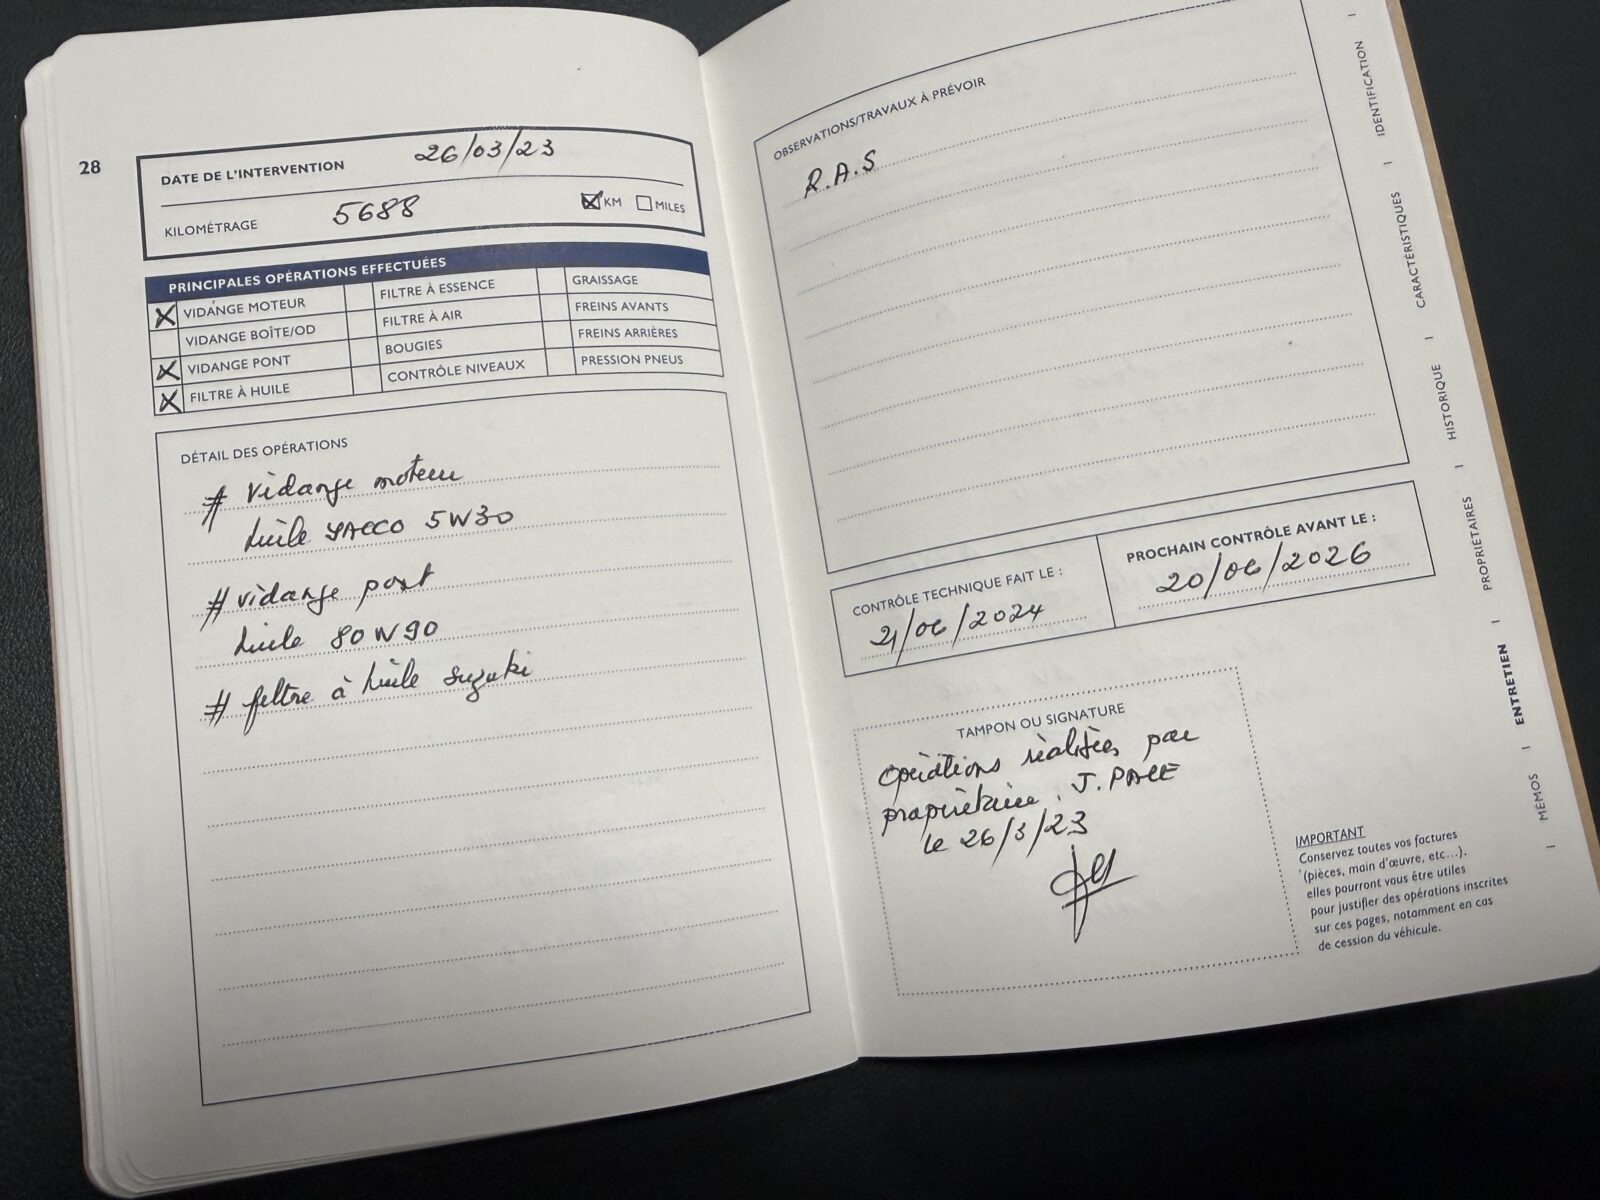 28
DATE DE L'INTERVENTION 26/03/23
KILOMÉTRAGE 5688 KM MILES
PRINCIPALES OPÉRATIONS EFFECTUÉES
VIDANGE MOTEUR FILTRE À ESSENCE GRAISSAGE
VIDANGE BOÎTE/OD FILTRE À AIR FREINS AVANTS
VIDANGE PONT BOUGIES FREINS ARRIÈRES
FILTRE À HUILE CONTRÔLE NIVEAUX PRESSION PNEUS
DÉTAIL DES OPÉRATIONS
# vidange moteur
huile YACCO 5W30
# vidange pont
huile 80W90
# filtre à huile suzuki
OBSERVATIONS/TRAVAUX À PRÉVOIR
R.A.S
CONTRÔLE TECHNIQUE FAIT LE :
21/06/2024
PROCHAIN CONTRÔLE AVANT LE :
20/06/2026
TAMPON OU SIGNATURE
opérations réalisées par
propriétaire. J.
le 26/3/23
IMPORTANT
Conservez toutes vos factures
(pièces, main d'œuvre, etc...),
elles pourront vous être utiles
pour justifier des opérations inscrites
sur ces pages, notamment en cas
de cession du véhicule.
IDENTIFICATION
CARACTÉRISTIQUES
HISTORIQUE
PROPRIÉTAIRES
ENTRETIEN
MÉMOS